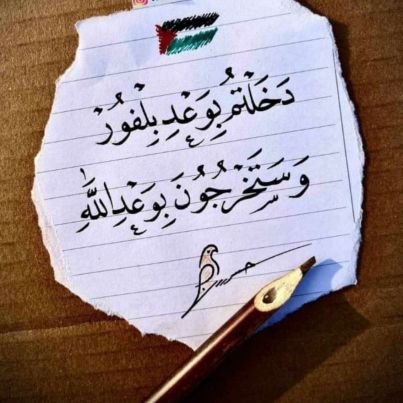 دَخَلْتُمْ بِوَعْدِ بِلْفُورْ
وَسَتَخْرُجُونَ بِوَعْدِ اللَّهِ